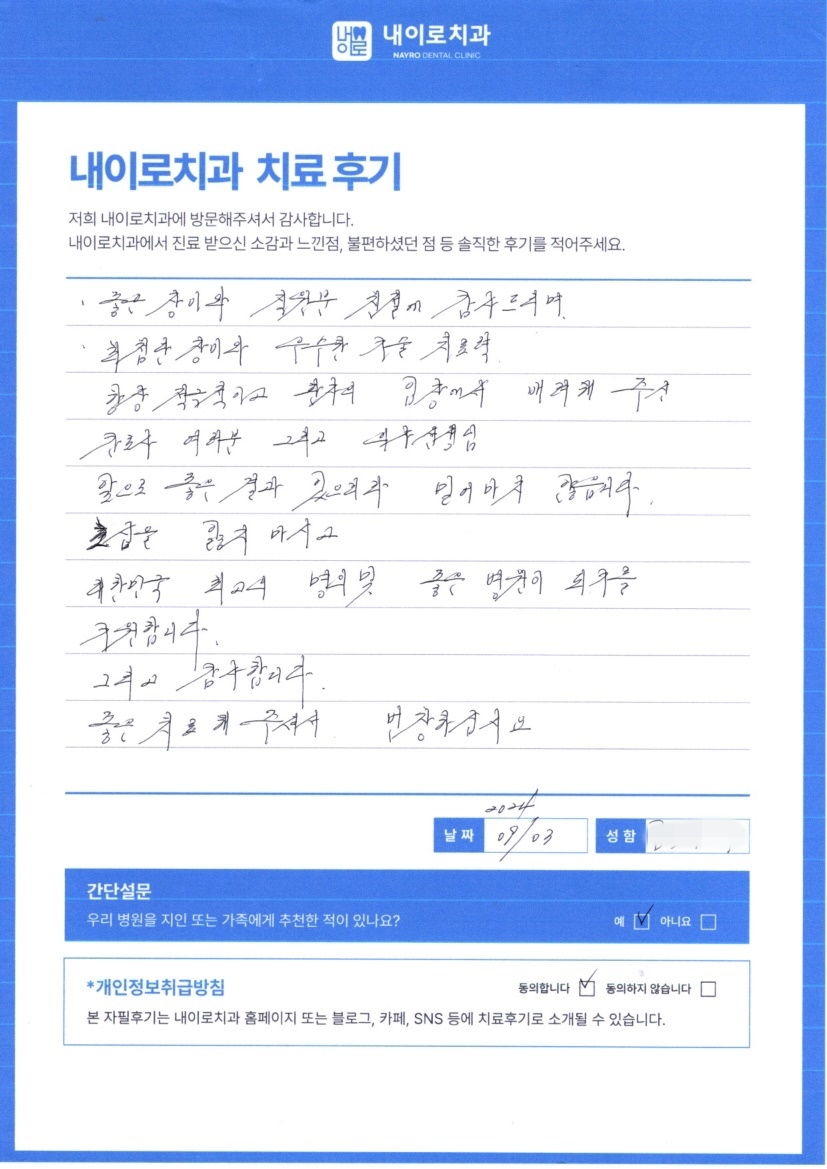 내이로
내이로치과
NAYRO DENTAL CLINIC
내이로치과 치료 후기
저희 내이로치과에 방문해주셔서 감사합니다.
내이로치과에서 진료 받으신 소감과 느낀점, 불편하셨던 점 등 솔직한 후기를 적어주세요.
· 좋은 장비와 직원분 친절에 감사드리며
· 최첨단 장비와 우수한 수술 치료력
항상 적극적이고 환자의 입장에서 배려해 주신
간호사 여러분 그리고 의사선생님
앞으로 좋은 결과 있으리라 믿어마지 않습니다.
초심을 잃지 마시고
대한민국 최고의 명의 및 좋은 병원이 되주를
기원합니다.
그리고 감사합니다.
좋은 치료 해 주셔서 번창하십시요
날 짜
2024
09/03
성 함
간단설문
우리 병원을 지인 또는 가족에게 추천한 적이 있나요?
예 아니요
*개인정보취급방침
동의합니다 동의하지 않습니다
본 자필후기는 내이로치과 홈페이지 또는 블로그, 카페, SNS 등에 치료후기로 소개될 수 있습니다.